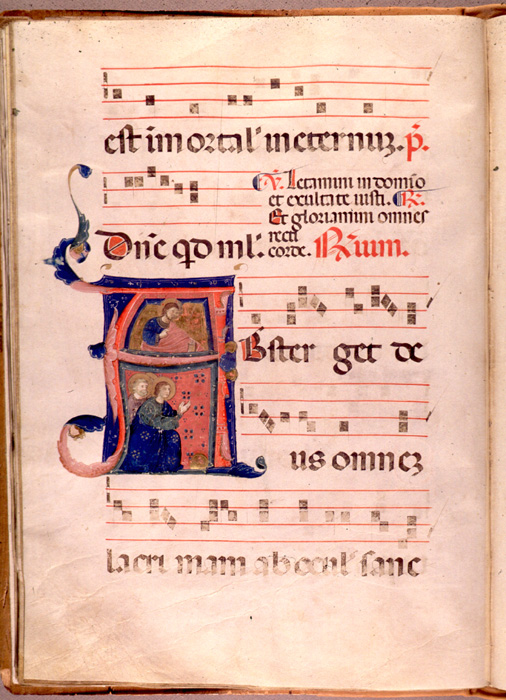 est im ortal' in eternuz. p̃.
V. Letamini in domino
et exultate iusti. R.
Et gloriamini omnes
recti
Dñe qđ ml'. corde. R̃ium.
ABster get de
us omnez
lacri mam ab occul' sanc